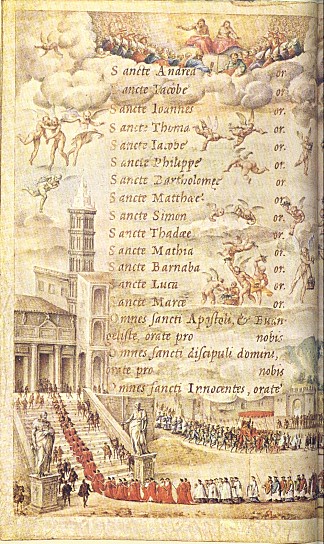 Sancte Andrea or.
Sancte Iacobe or.
Sancte Ioannes or.
Sancte Thoma or.
Sancte Iacobe or.
Sancte Philippe or.
Sancte Bartholomeę or.
Sancte Matthæe or.
Sancte Simon or.
Sancte Thadæe or.
Sancte Mathia or.
Sancte Barnaba or.
Sancte Luca or.
Sancte Marce or.
Omnes sancti Apostoli, & Euan
geliste, orate pro nobis
Omnes sancti discipuli domini,
orate pro nobis
Omnes sancti Innocentes, orate